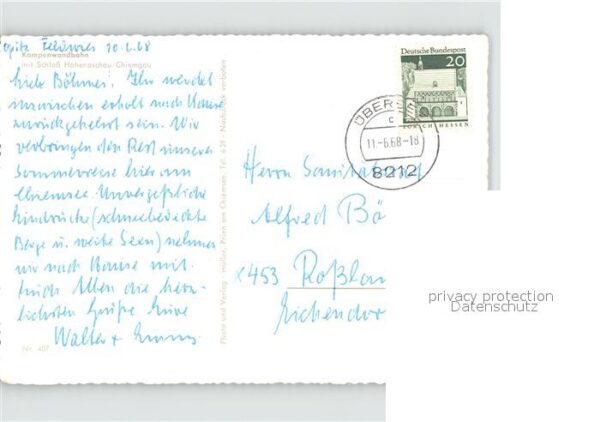 10.6.68
Kampenwandbahn
mit Schloß Hohenaschau-Chiemgau
Liebe Böhmes! Ihr werdet
inzwischen erholt nach Hause
zurückgekehrt sein. Wir
verbringen den Rest unserer
Sommerreise hier am
Chiemsee. Unvergeßliche
Eindrücke (schneebedeckte
Berge u. weite Seen) nehmen
wir nach Hause mit.
Euch Allen die herz-
lichsten Grüße Eure
Walter +
Nr. 407
Photo und Verlag
Prien am Chiemsee, Tel. 628 - Nachdruck verboten
Deutsche Bundespost
20
LORSCH/HESSEN
ÜBERSEE
c
11.-6.68-18
8212
Herrn Sanitätsrat
Alfred Bö
x453 Roßlau
Eichendor
privacy protection
Datenschutz